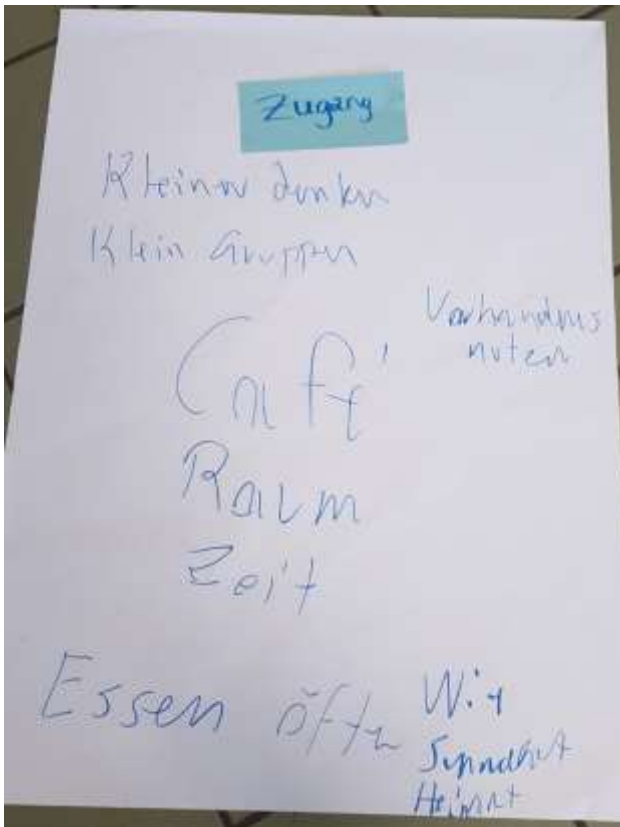 Zugang
Kleiner denken
Klein Gruppen
Vorhandenes
nutzen
Café
Raum
Zeit
Essen öfter
Wir
Heimat